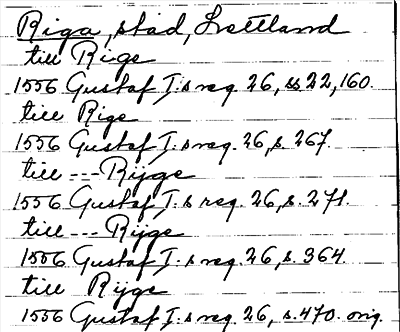 Riga, stad, Lettland
till Rige
1556 Gustaf I:s reg. 26, ss 22, 160.
till Rige
1556 Gustaf I:s reg. 26, s. 267.
till --- Rijge
1556 Gustaf I:s reg. 26, s. 271.
till --- Rijge
1556 Gustaf I:s reg. 26, s. 364.
till Rijge
1556 Gustaf I:s reg. 26, s. 470. orig.